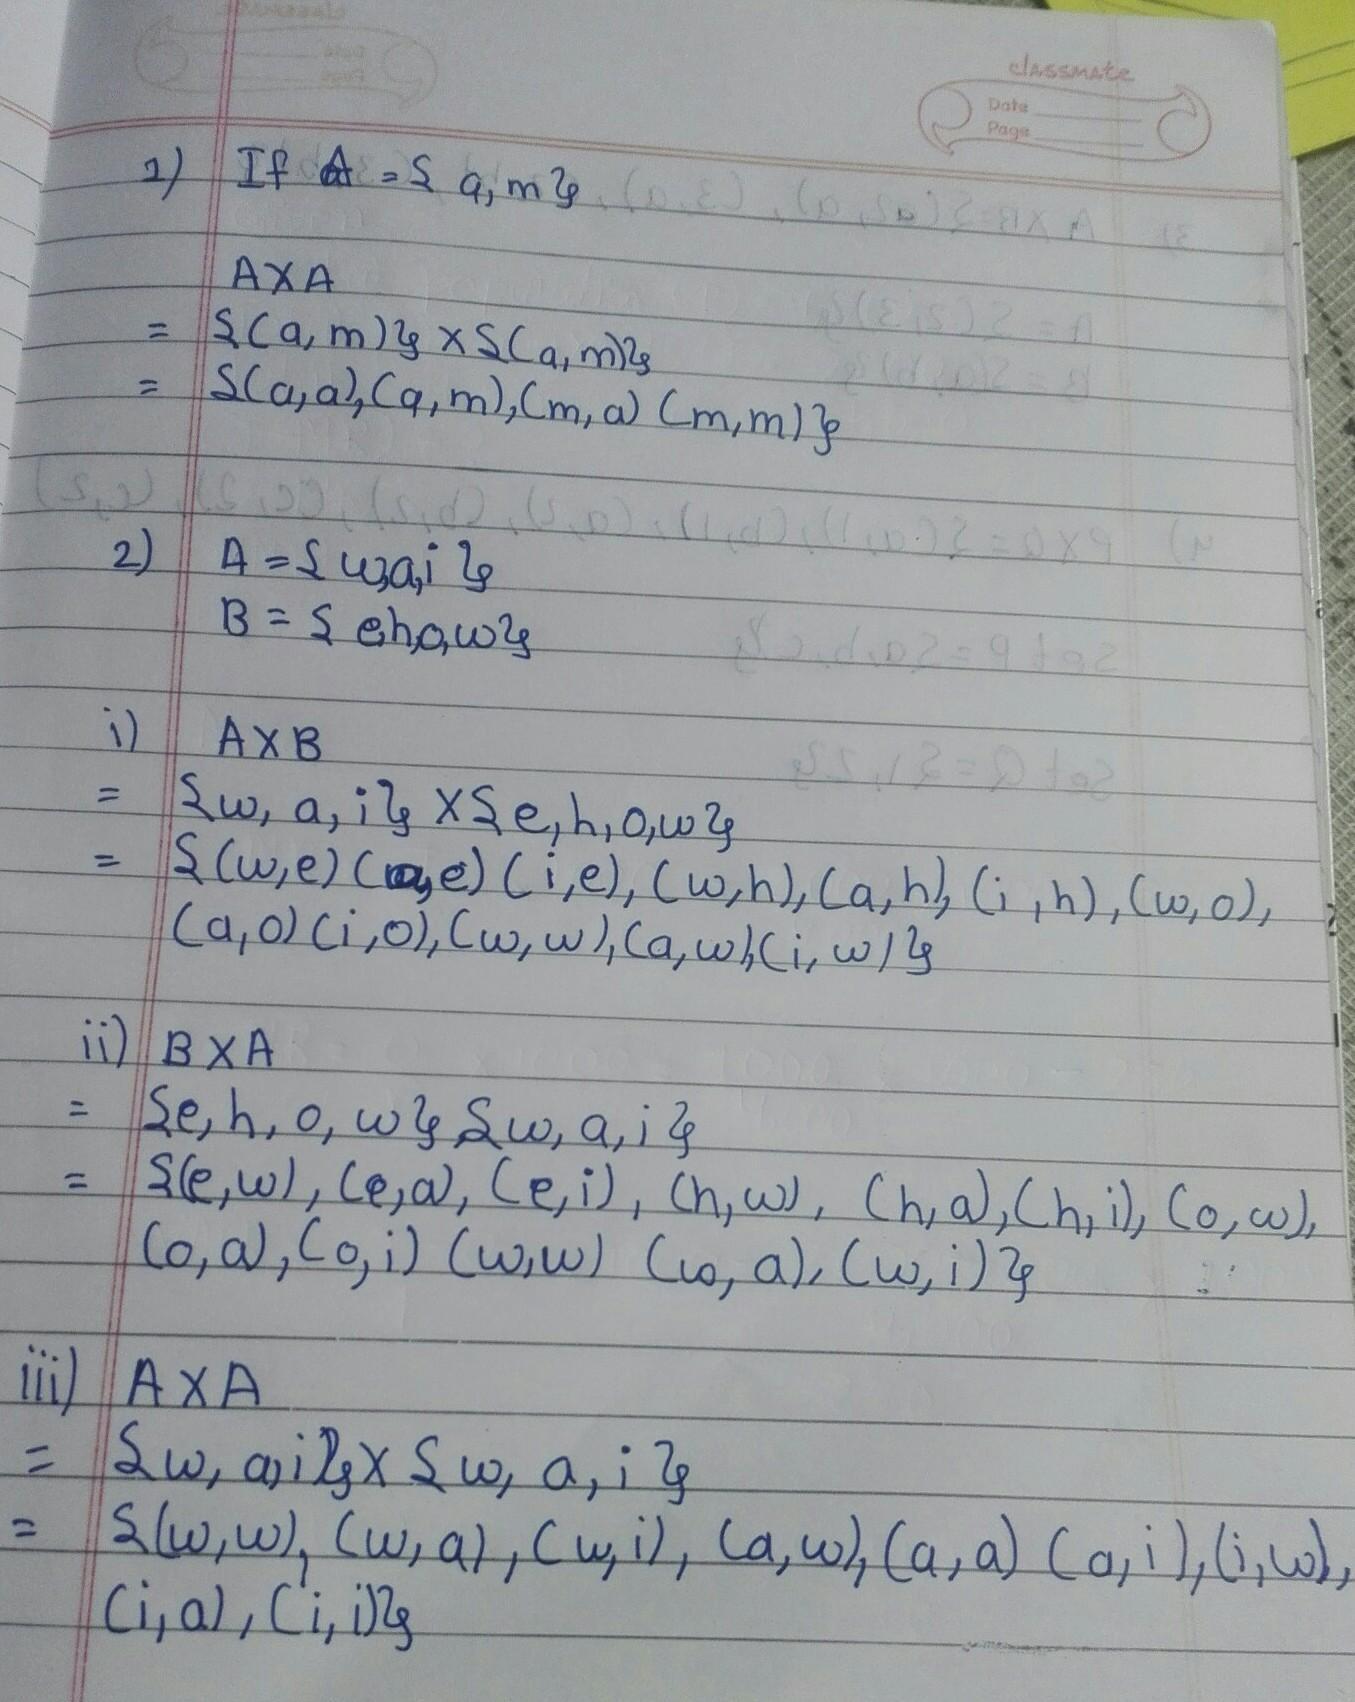 classmate
Date
Page
1) If A = { a, m}
A X A
= {(a, m)} X {(a, m)}
= {(a, a), (a, m), (m, a) (m, m)}
2) A = { w,a,i }
B = { e,h,o,w}
i) A X B
= {w, a, i} X {e, h, o, w}
= {(w,e) (a,e) (i,e), (w,h), (a,h), (i,h), (w,o),
(a,o) (i,o), (w,w), (a,w), (i,w)}
ii) B X A
= {e, h, o, w} {w, a, i}
= {(e,w), (e,a), (e,i), (h,w), (h,a), (h,i), (o,w),
(o,a), (o,i) (w,w) (w,a), (w,i)}
iii) A X A
= {w, a,i} X {w, a, i}
= {(w,w), (w,a), (w,i), (a,w), (a,a) (a,i), (i,w),
(i,a), (i,i)}